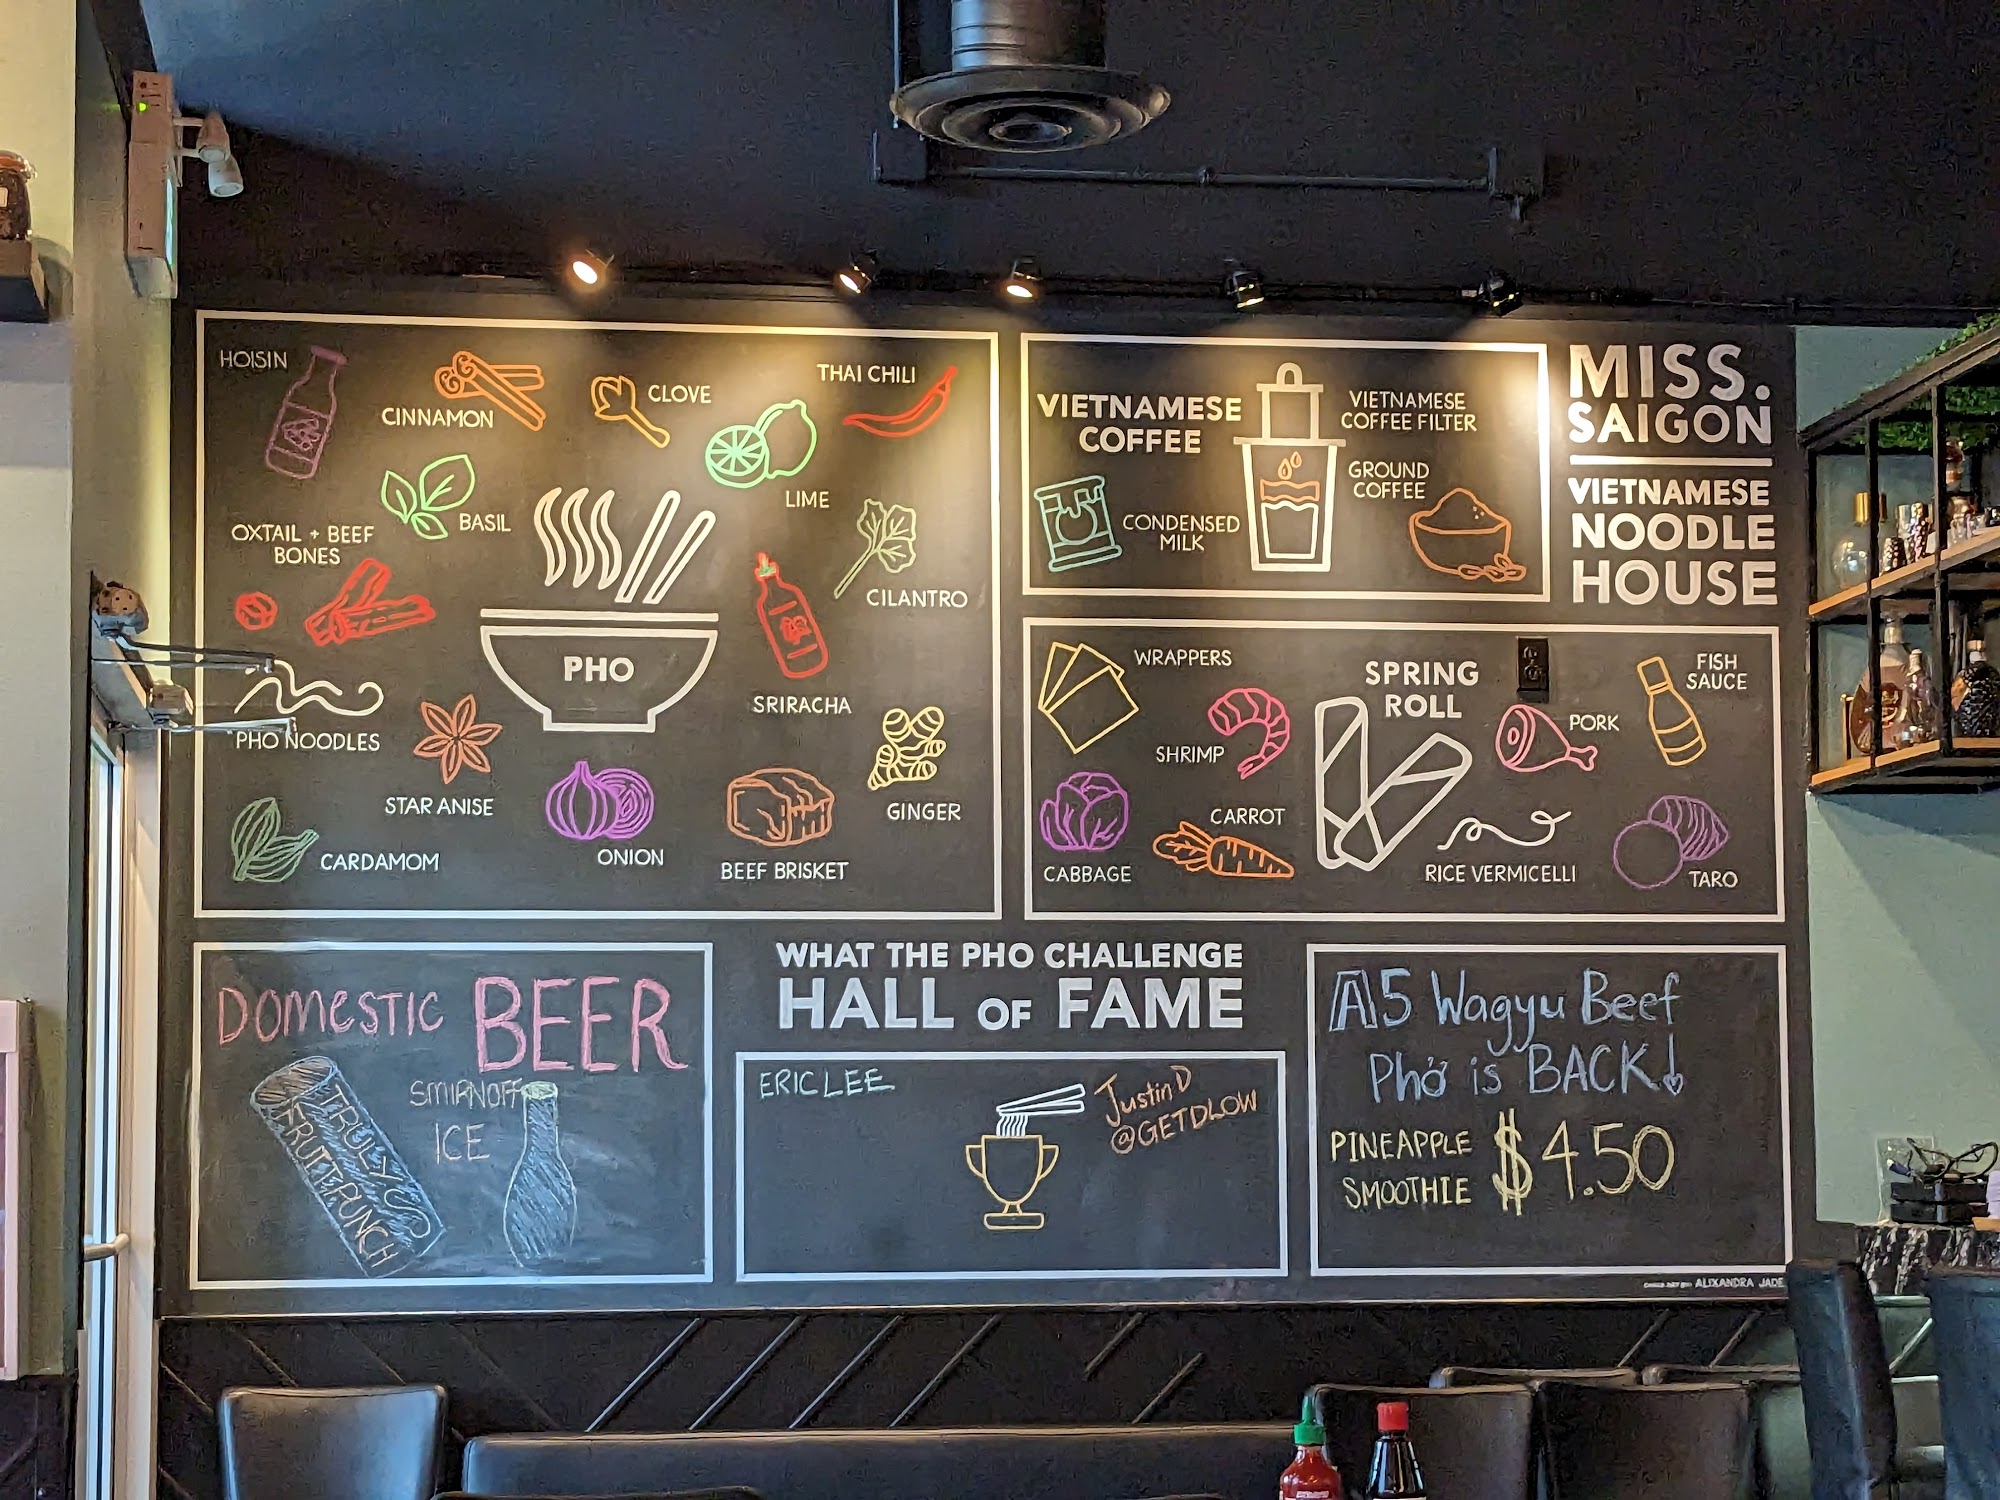 HOISIN
CINNAMON
CLOVE
THAI CHILI
LIME
BASIL
OXTAIL + BEEF
BONES
CILANTRO
PHO
SRIRACHA
PHO NOODLES
STAR ANISE
GINGER
CARDAMOM
ONION
BEEF BRISKET
VIETNAMESE
COFFEE
VIETNAMESE
COFFEE FILTER
GROUND
COFFEE
CONDENSED
MILK
MISS.
SAIGON
VIETNAMESE
NOODLE
HOUSE
WRAPPERS
SPRING
ROLL
FISH
SAUCE
SHRIMP
PORK
CARROT
CABBAGE
RICE VERMICELLI
TARO
DOMESTIC BEER
TRULY
FRUIT PUNCH
SMIRNOFF
ICE
WHAT THE PHO CHALLENGE
HALL OF FAME
ERIC LEE
Justin D
@GETDLOW
A5 Wagyu Beef
Phở is BACK!
PINEAPPLE
SMOOTHIE
$4.50
ALIXANDRA JADE